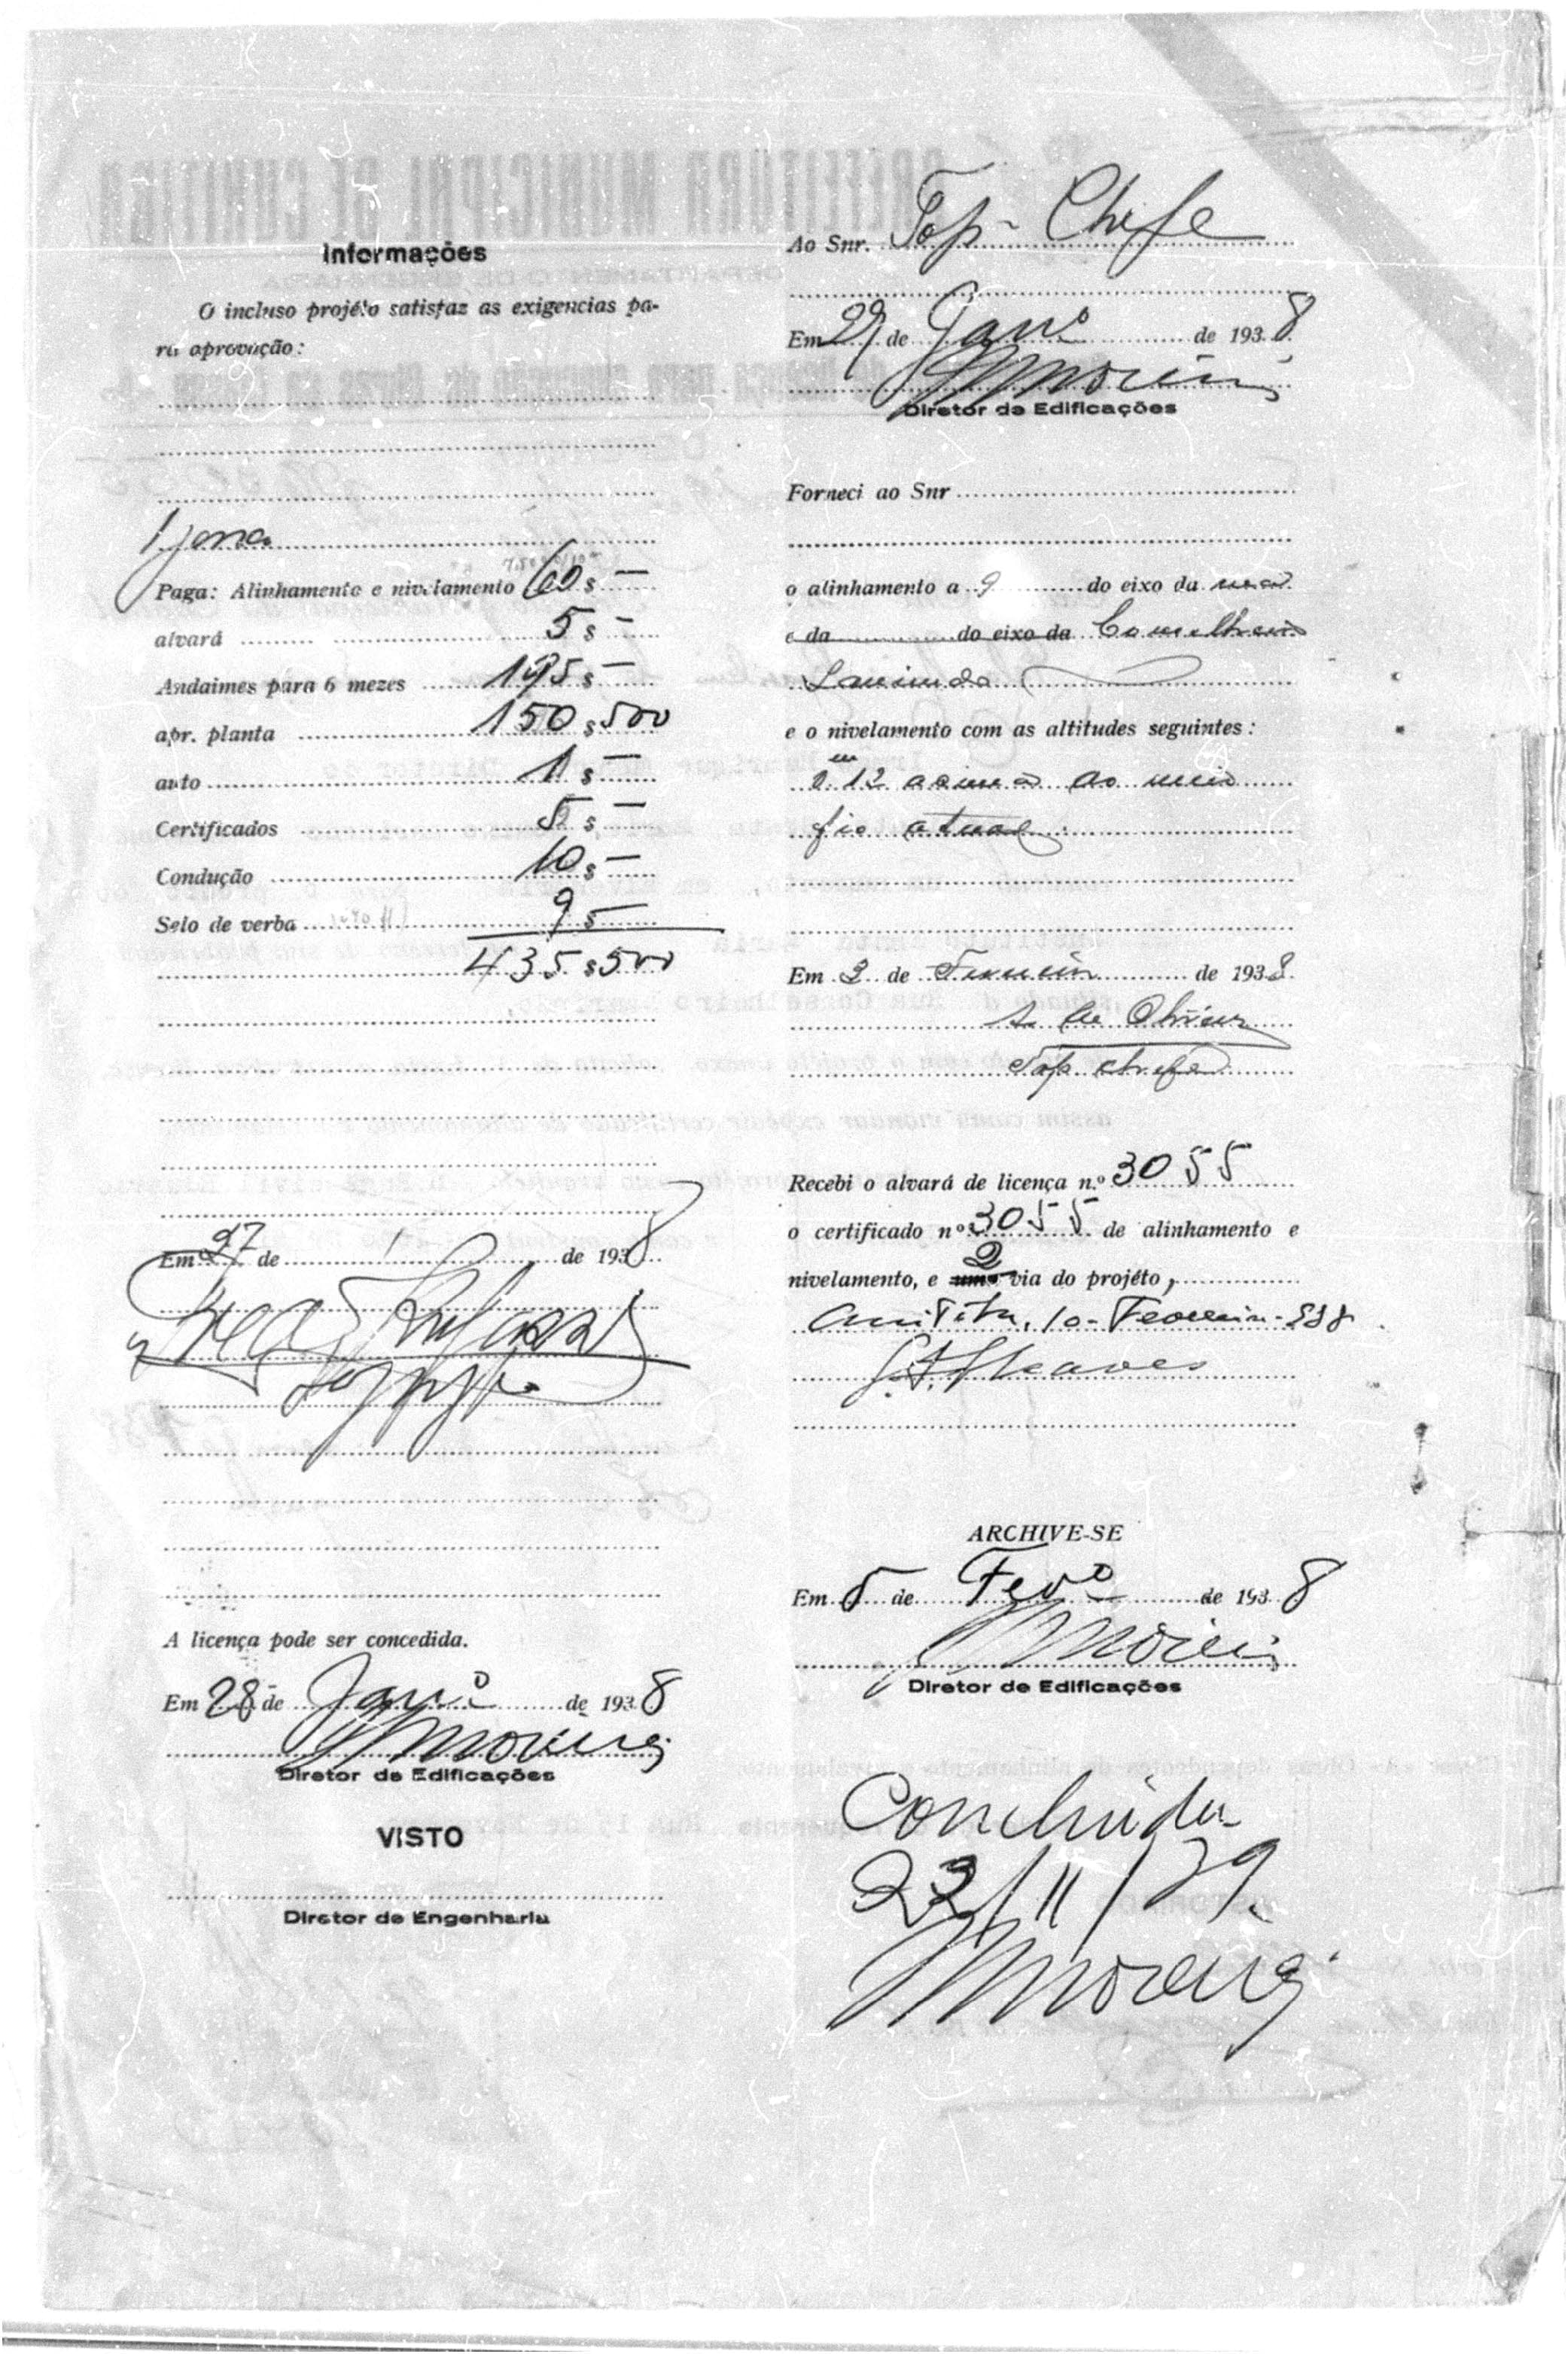 Informações
O incluso projéto satisfaz as exigencias pa-
ra aprovação:
1 zona
Paga: Alinhamento e nivelamento 60 $ —
alvará 5 $ —
Andaimes para 6 mezes 195 $ —
apr. planta 150 $ 500
auto 1 $ —
Certificados 5 $ —
Condução 10 $ —
Selo de verba 9 $ —
435 $ 500
Em 27 de 1 de 1938
A licença pode ser concedida.
Em 28 de Janº de 1938
Moreira
Diretor de Edificações
VISTO
Diretor de Engenharia
Ao Snr. Top- Chefe
Em 29 de Janº de 1938
Moreira
Diretor de Edificações
Forneci ao Snr
o alinhamento a 9 do eixo da rua
e da do eixo da Conselheiro
Laurindo
e o nivelamento com as altitudes seguintes:
0.m12 acima do meio
fio atual.
Em 3 de Fevereiro de 1938
A. de Oliveira
Top chefe
Recebi o alvará de licença n.º 3055
o certificado nº 3055 de alinhamento e
nivelamento, e 2 via do projéto,
Curitiba, 10- Fevereiro- 938.
ARCHIVE-SE
Em 5 de Fevº de 1938
Moreira
Diretor de Edificações
Concluida
23/11/39.
Moreira